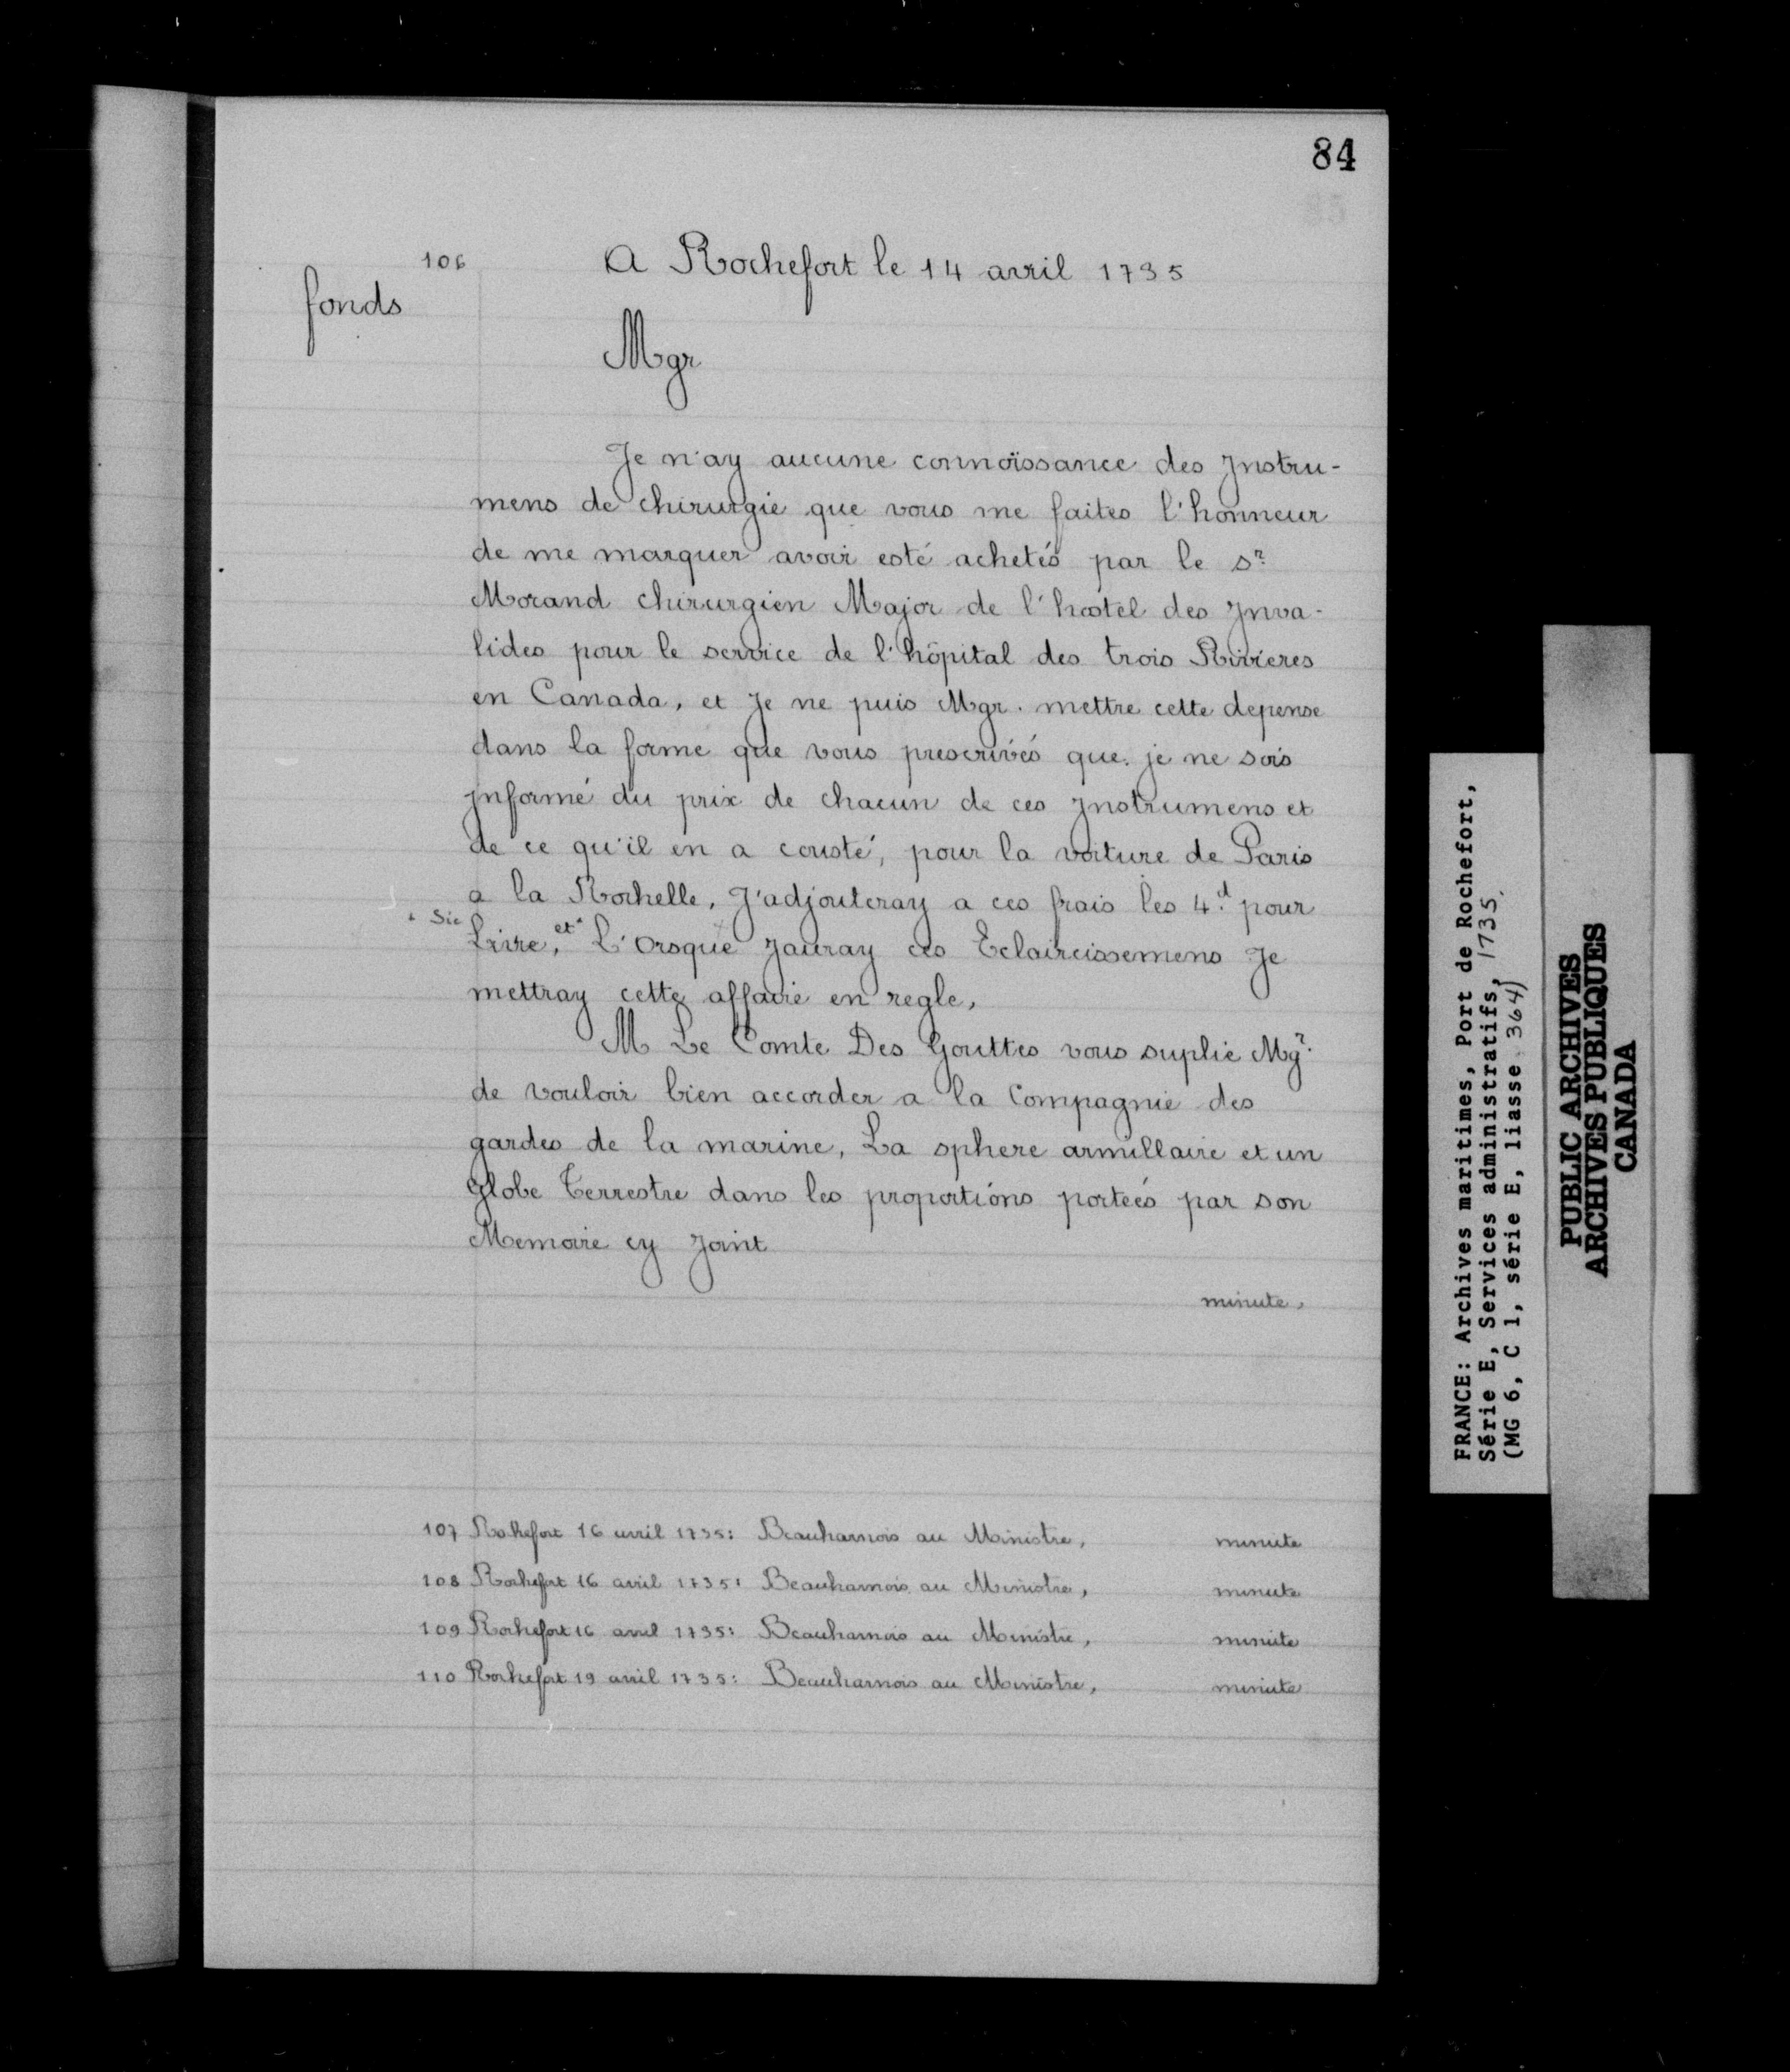 84
106
A Rochefort le 14 avril 1735
fonds
Mgr
Je n'ay aucune connoissance des Jnstru-
mens de chirurgie que vous me faites l'honneur
de me marquer avoir esté achetés par le Sr
Morand chirurgien Major de l'hostel des Jnva-
lides pour le service de l'hôpital des trois Rivieres
en Canada, et Je ne puis Mgr. mettre cette depense
dans la forme que vous prescrivés que je ne sois
jnformé du prix de chacun de ces Jnstrumens et
de ce qu'il en a cousté, pour la voiture de Paris
a la Rochelle, J'adjouteray a ces frais les 4d pour
Sic
Livre, et L'Orsque Jauray ces Eclaircissemens Je
mettray cette affaire en regle,
M Le Comte Des Gouttes vous suplie Mgr.
de vouloir bien accorder a la Compagnie des
gardes de la marine, La sphere armillaire et un
Globe Terrestre dans les proportions portées par son
Memoire cy Joint
minute,
107 Rochefort 16 avril 1735: Beauharnois au Ministre, minute
108 Rochefort 16 avril 1735: Beauharnois au Ministre, minute
109 Rochefort 16 avril 1735: Beauharnois au Ministre, minute
110 Rochefort 19 avril 1735: Beauharnois au Ministre, minute
FRANCE: Archives maritimes, Port de Rochefort,
Série E, Services administratifs, 1735.
(MG 6, C 1, série E, liasse 364)
PUBLIC ARCHIVES
ARCHIVES PUBLIQUES
CANADA